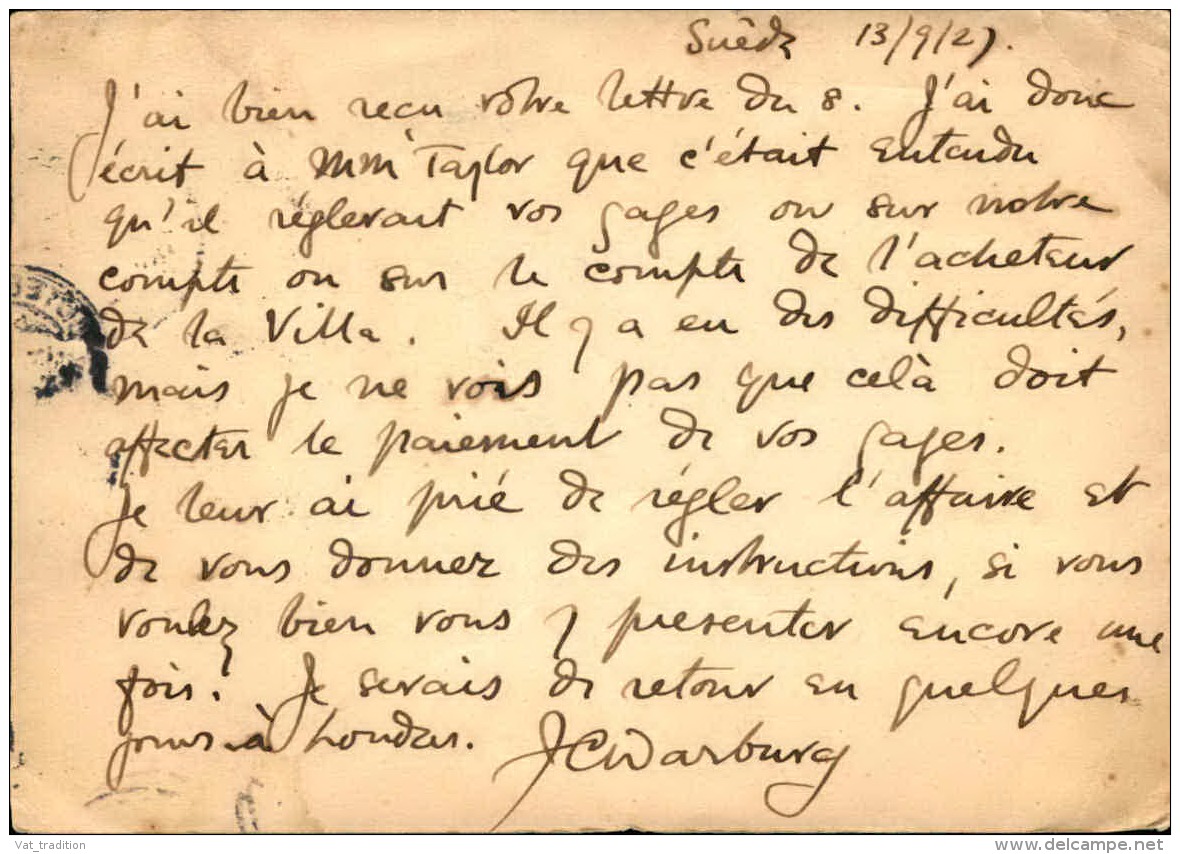 Suède 13/9/27.
J'ai bien reçu vôtre lettre du 8. J'ai donc
écrit à MM Taylor que c'était entendu
qu'il réglerait vos gages ou sur notre
compte ou sur le compte de l'acheteur
de la Villa. Il y a eu des difficultés,
mais je ne vois pas que celà doit
affecter le paiement de vos gages.
Je leur ai prié de régler l'affaire et
de vous donner des instructions, si vous
voulez bien vous y presenter encore une
fois. Je serais de retour en quelques
jours à Londres. JCWarburg
Vat_tradition
delcampe.net